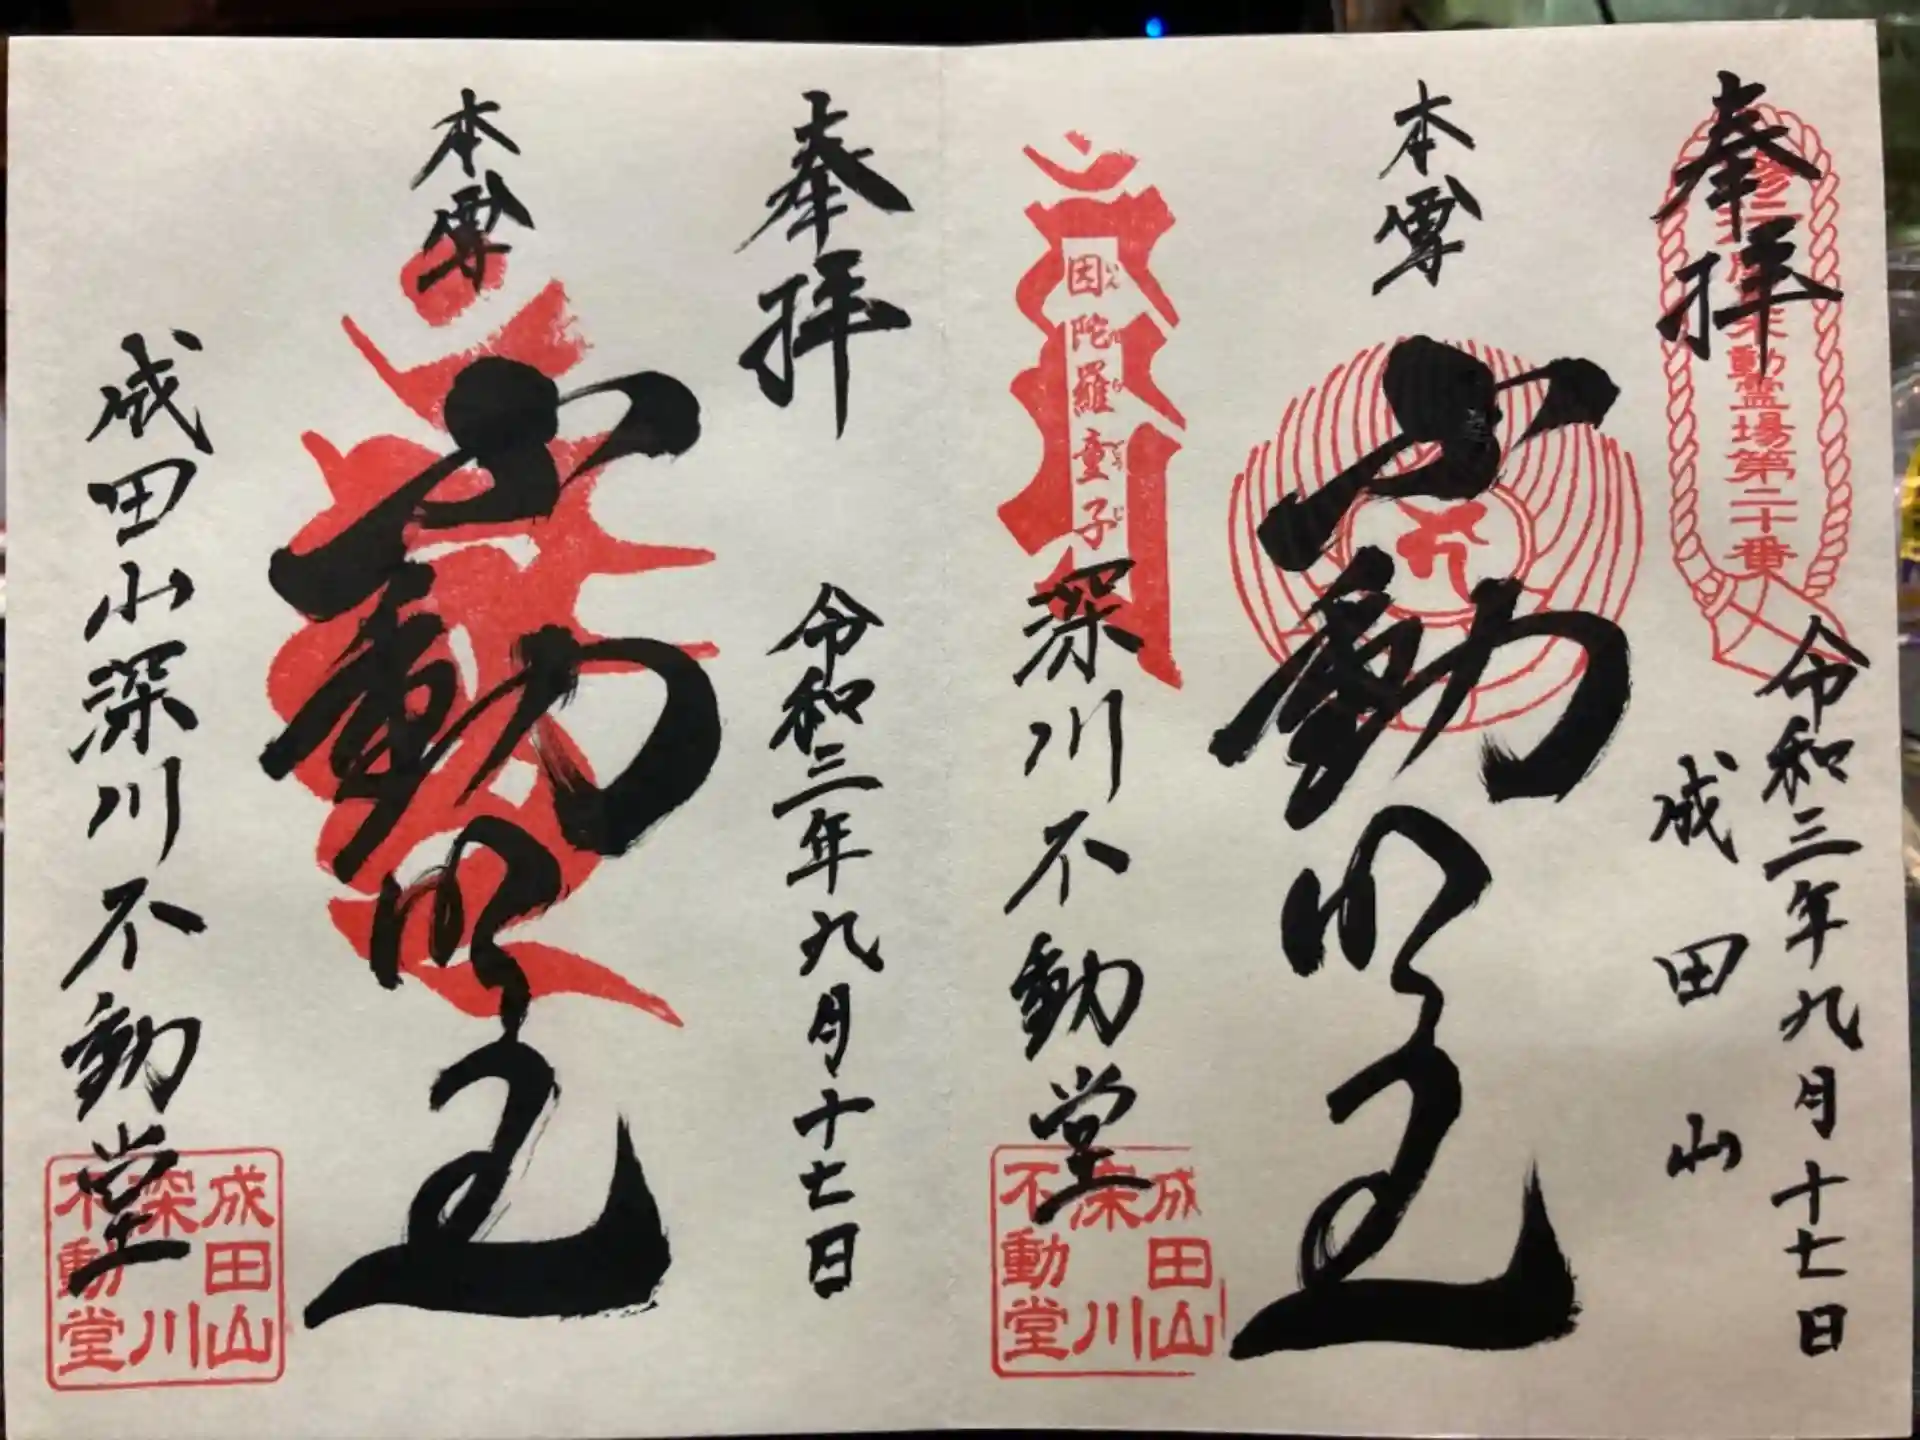 奉拝
令和三年九月十七日
不動霊場第二十番
成田山
本尊
不動明王
因陀羅童子
いんだらどうじ
深川不動堂
成田山
深川
不動堂
奉拝
令和三年九月十七日
本尊
不動明王
成田山深川不動堂
成田山
深川
不動堂